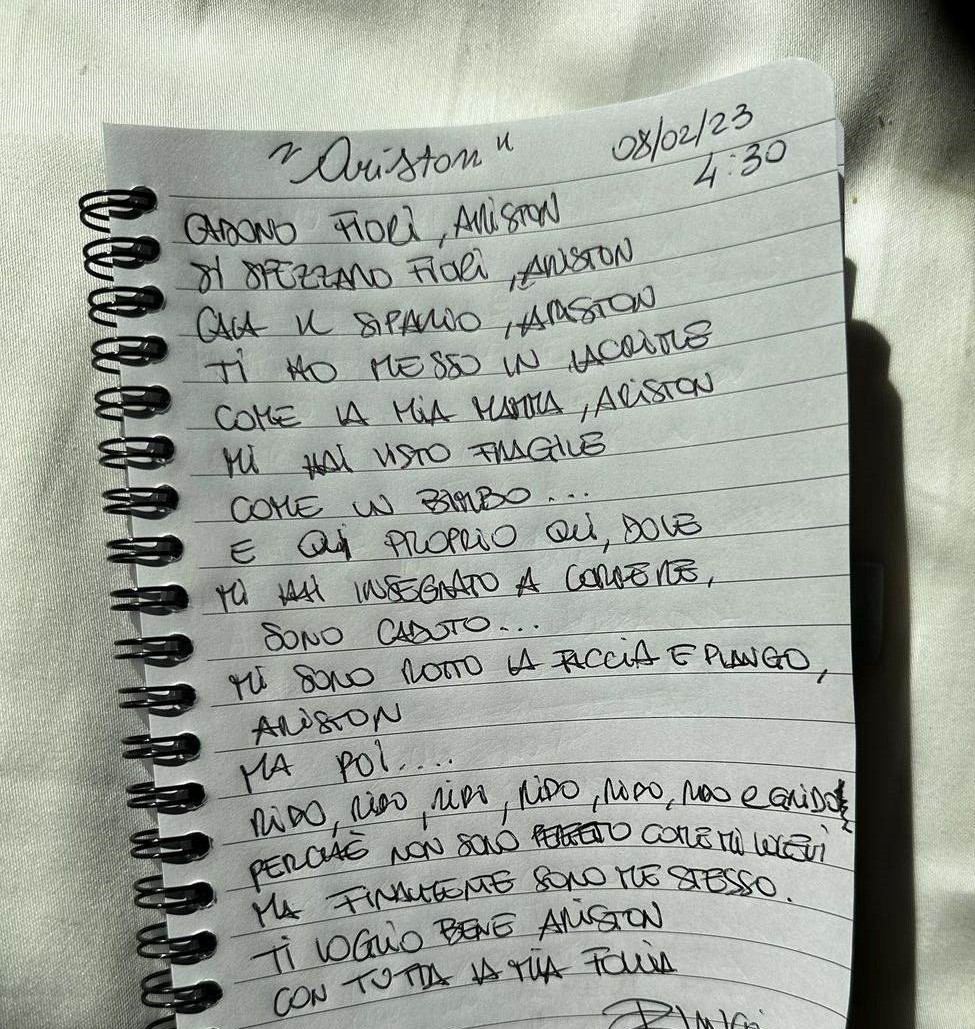 "Ariston" 08/02/23
4:30
CADONO FIORI, ARISTON
SI SPEZZANO FIORI, ARISTON
CALA IL SIPARIO, ARISTON
TI HO MESSO IN LACRIME
COME LA MIA MAMMA, ARISTON
MI HAI VISTO FRAGILE
COME UN BIMBO...
E QUI PROPRIO QUI, DOVE
MI HAI INSEGNATO A CORRERE,
SONO CADUTO...
MI SONO ROTTO LA FACCIA E PIANGO,
ARISTON
MA POI....
RIDO, RIDO, RIDO, RIDO, RIDO, RIDO e GRIDO
PERCHÈ NON SONO PERFETTO COME MI VOLEVI
MA FINALMENTE SONO ME STESSO.
TI VOGLIO BENE ARISTON
CON TUTTA LA MIA FOLLIA